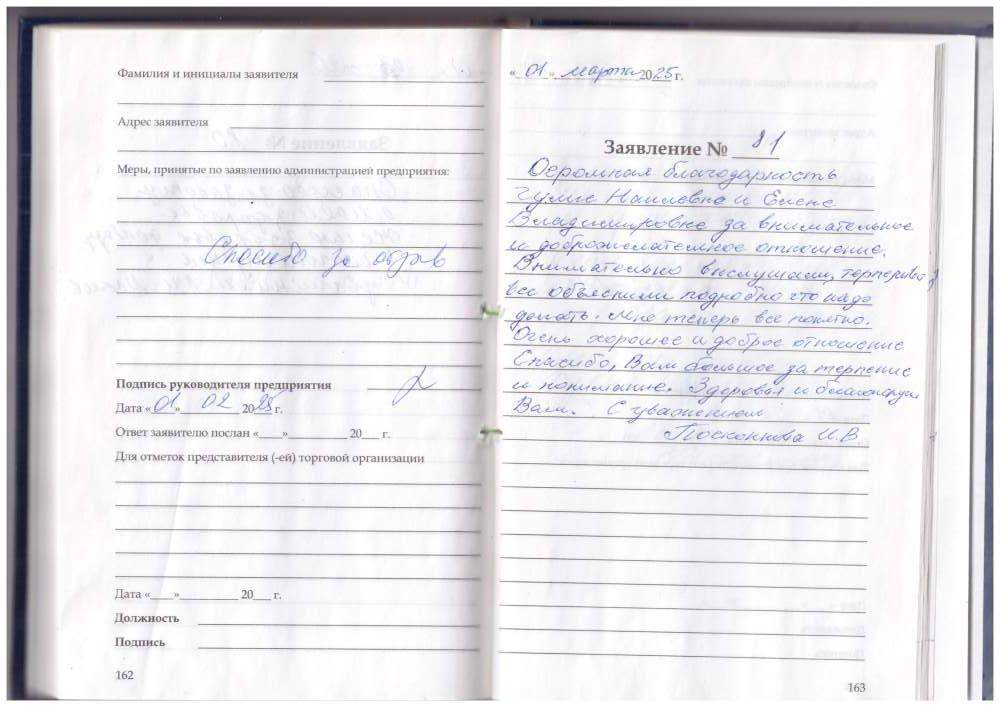 Фамилия и инициалы заявителя
Адрес заявителя
Меры, принятые по заявлению администрацией предприятия:
Спасибо за отзыв
Подпись руководителя предприятия
Дата «01» 02 2025 г.
Ответ заявителю послан «___»__________ 20___ г.
Для отметок представителя (-ей) торговой организации
Дата «____»__________ 20___ г.
Должность
Подпись
162
«01» марта 2025 г.
Заявление № 81
Огромная благодарность
Наилевне и Елене
Владимировне за внимательное
и доброжелательное отношение.
Внимательно выслушали, терпеливо
все объяснили подробно что надо
делать. Мне теперь все понятно.
Очень хорошее и доброе отношение
Спасибо, Вам большое за терпение
и понимание. Здоровья и
Вам. С уважением
И.В.
163